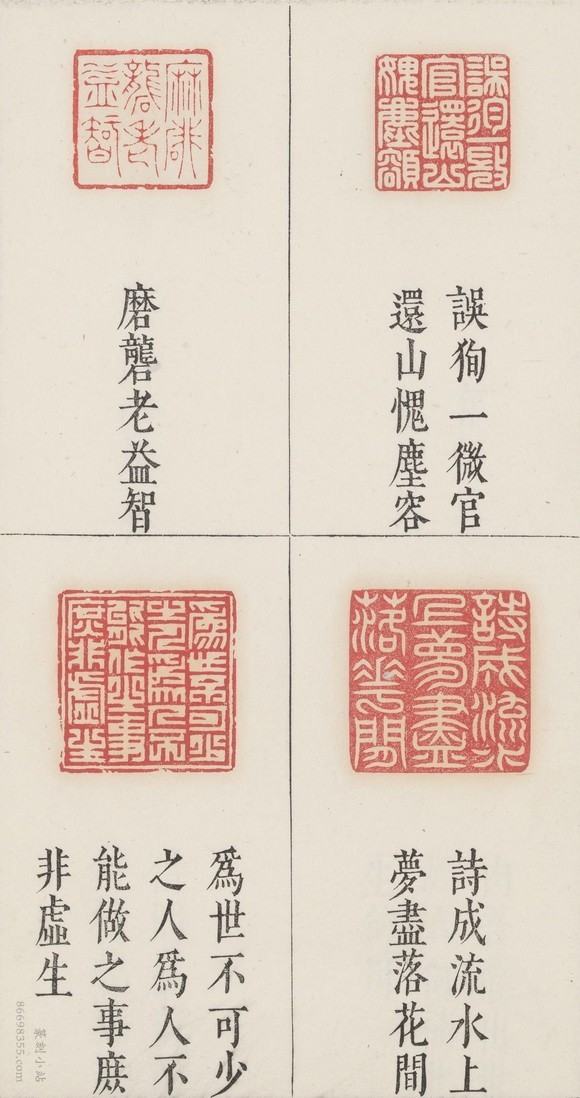 誤狥一微官
還山愧塵容
磨礱老益智
詩成流水
上夢盡
落花間
詩成流水上
夢盡落花間
爲世不可少
之人爲人不
能做之事庶
非虛生
篆刻小站
86698355.com